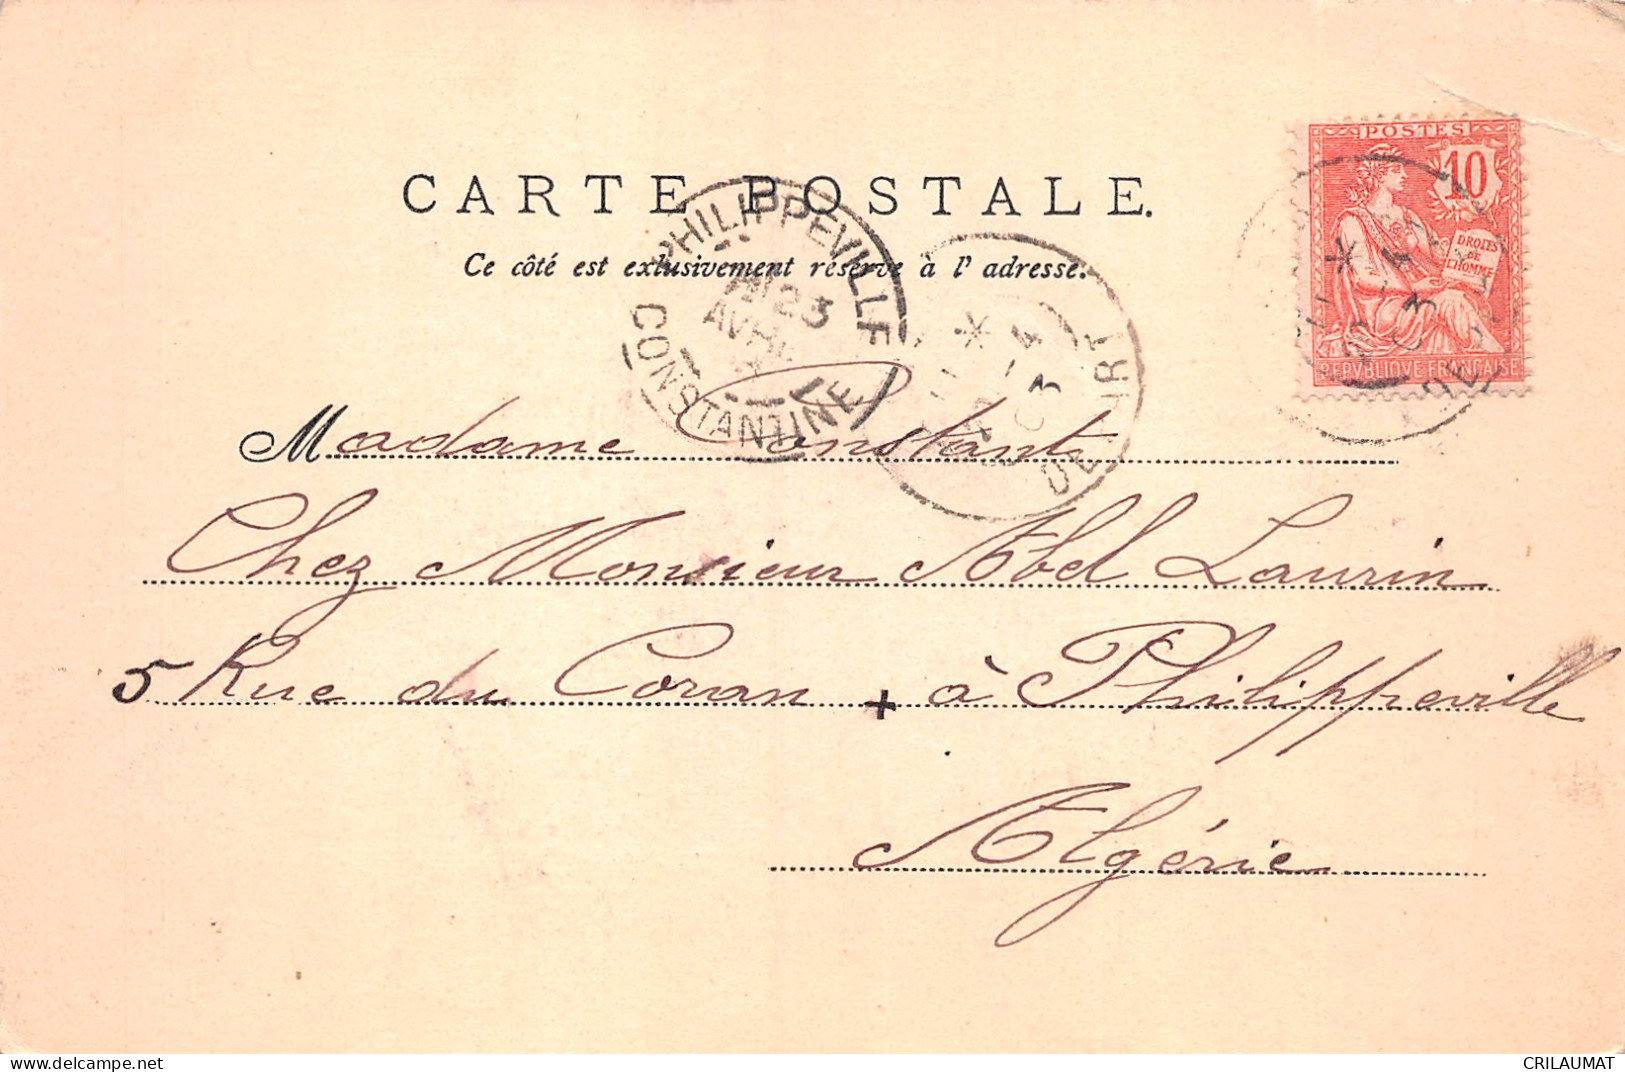 POSTES
10
DROITS
DE
L'HOMME
REPVBLIQVE FRANÇAISE
CARTE POSTALE.
Ce côté est exclusivement réservé à l'adresse.
PHILIPPEVILLE
23
AVRIL
CONSTANTINE
Madame Constant
Chez Monsieur Abel Laurin
5 Rue du Coran + à Philippeville
Algérie
delcampe.net
CRILAUMAT